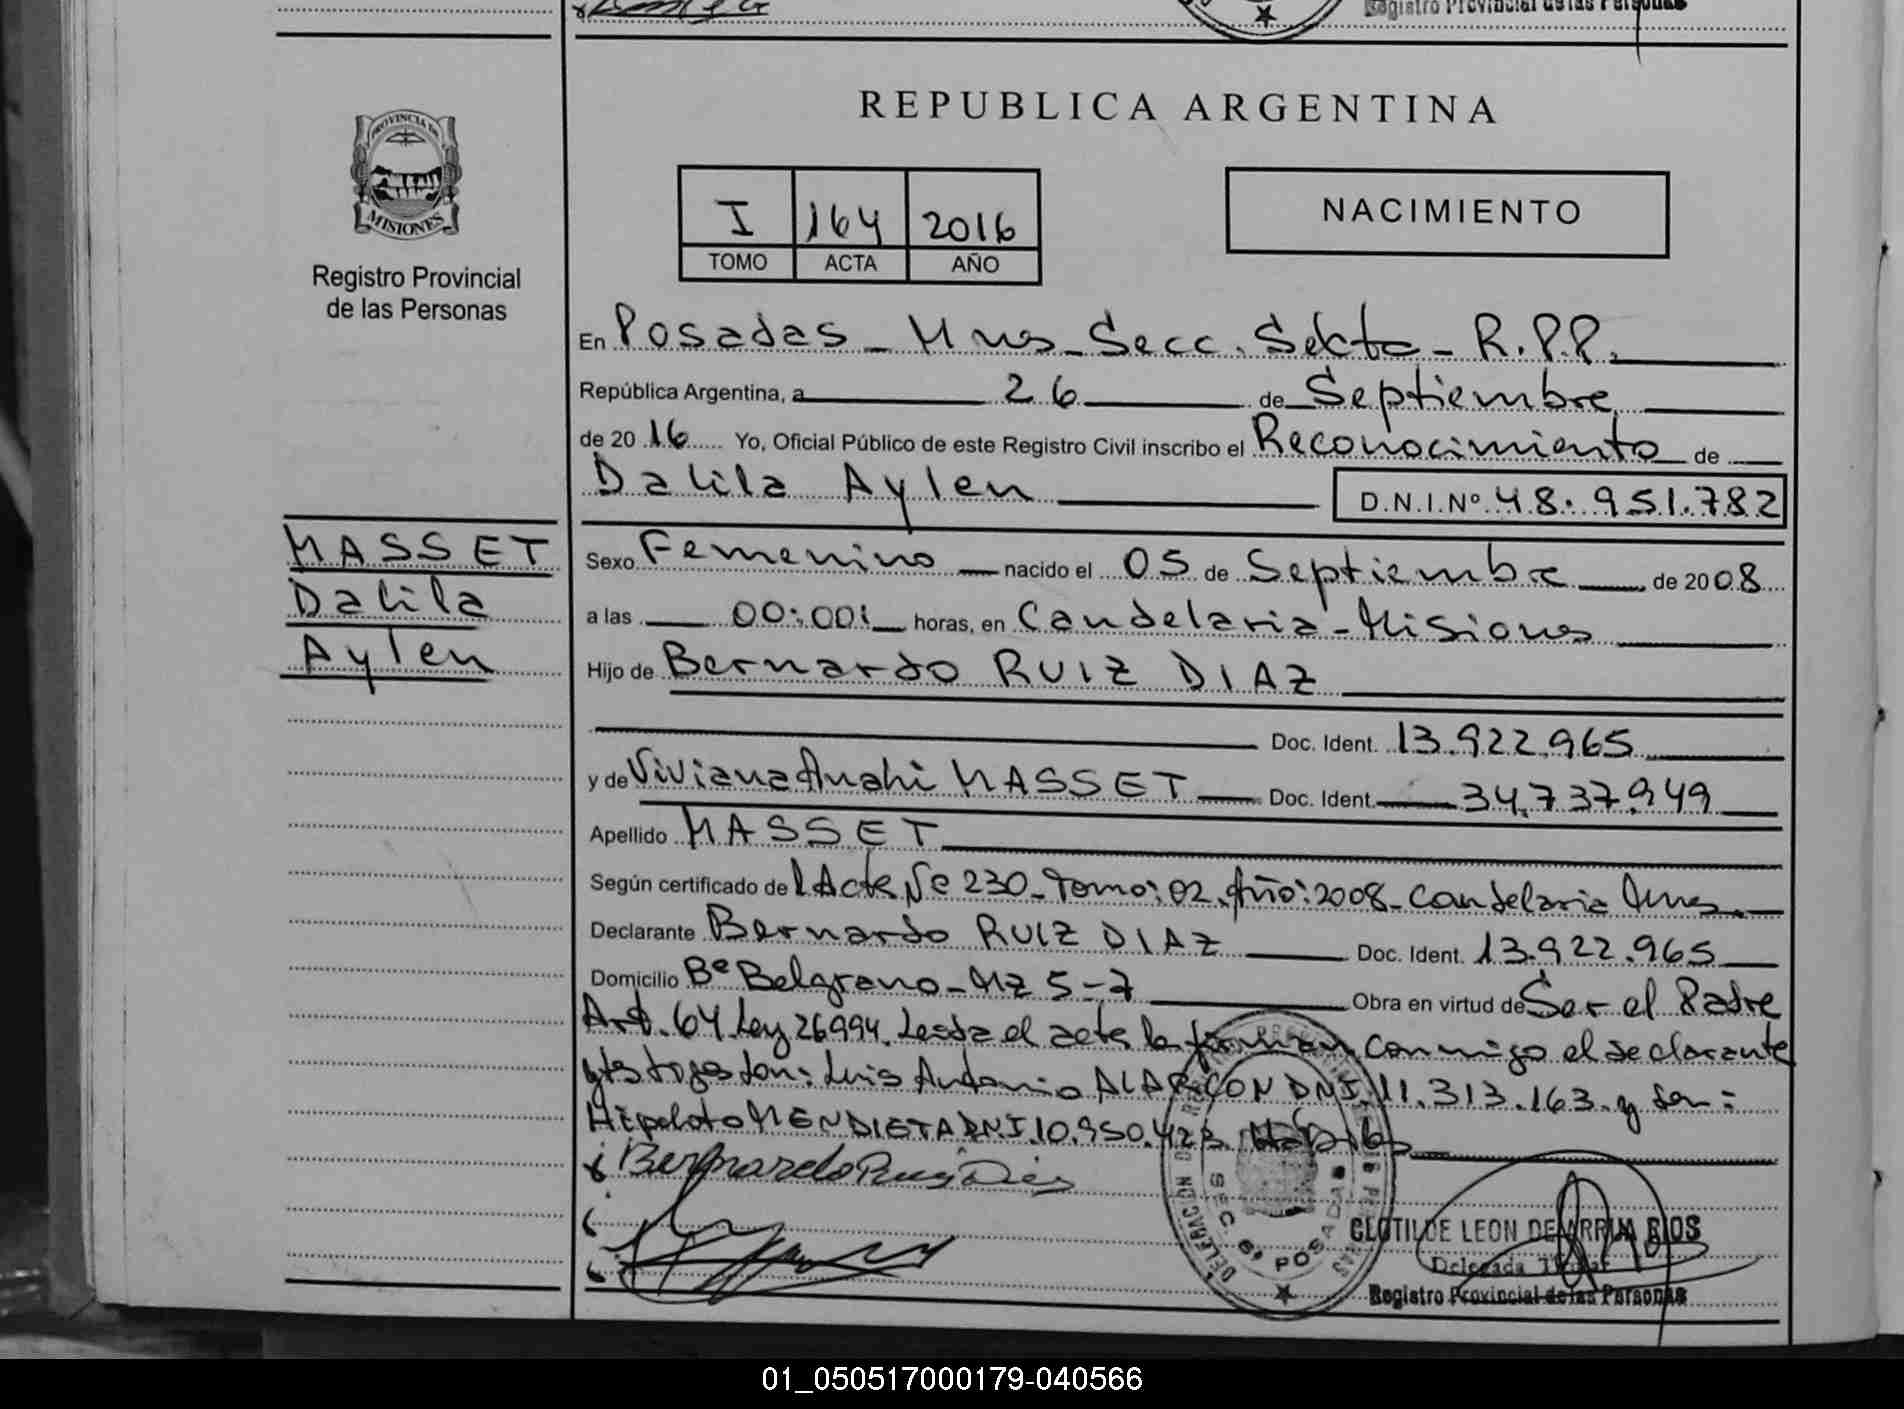 Registro Provincial de las Personas
REPUBLICA ARGENTINA
PROVINCIA DE
MISIONES
Registro Provincial
de las Personas
I 164 2016
TOMO ACTA AÑO
NACIMIENTO
En Posadas - Mnes - Secc. Sexta - R.P.P.
República Argentina, a 26 de Septiembre
de 2016 Yo, Oficial Público de este Registro Civil inscribo el Reconocimiento de
Dalila Aylen D.N.I.Nº 48.951.782
MASSET
Dalila
Aylen
Sexo Femenino nacido el 05 de Septiembre de 2008
a las 00:00 horas, en Candelaria - Misiones
Hijo de Bernardo RUIZ DIAZ
Doc. Ident. 13.922.965
y de Viviana Anahi MASSET Doc. Ident. 34.737.949
Apellido MASSET
Según certificado de Acta Nº 230 - Tomo: 02. Año: 2008 - Candelaria Mnes.
Declarante Bernardo RUIZ DIAZ Doc. Ident. 13.922.965
Domicilio Bº Belgrano - Mz 5 - 7 Obra en virtud de Ser el Padre
Art. 64 Ley 26994. Leida el acta la firman conmigo el declarante
y testigos Don: Luis Antonio ALARCON DNI. 11.313.163. y Don:
Hipolito MENDIETA DNI. 10.950.423.
Bernardo Ruiz Diaz
SECC. 6ª POSADAS
CLOTILDE LEON DE ARRUA RIOS
Delegada Titular
Registro Provincial de las Personas
01_050517000179-040566